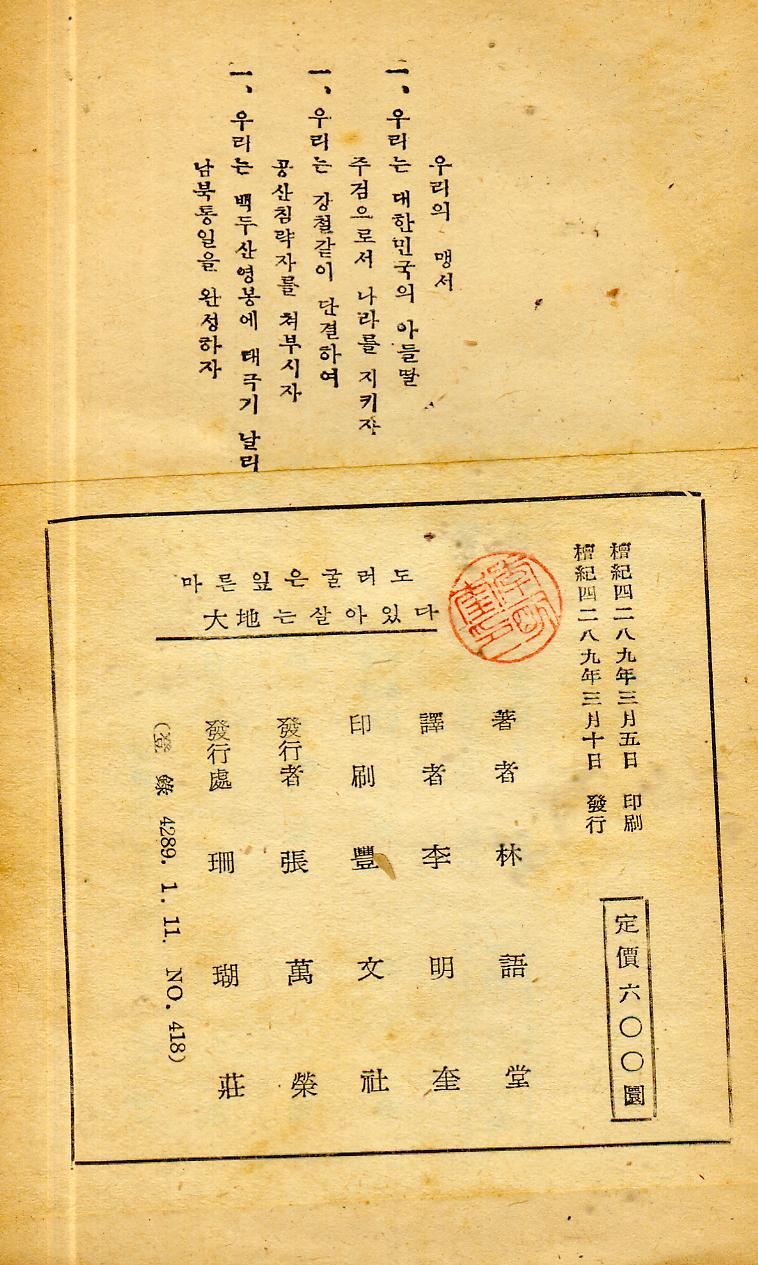 우리의 맹서
一、우리는 대한민국의 아들딸
주검으로서 나라를 지키자
一、우리는 강철같이 단결하여
공산침략자를 처부시자
一、우리는 백두산영봉에 태극기 날리
남북통일을 완성하자
檀紀四二八九年三月五日 印刷
檀紀四二八九年三月十日 發行
定價六〇〇圜
마른잎은굴러도
大地는살아있다
著者 林語堂
譯者 李明奎
印刷 豐文社
發行者 張萬榮
發行處 珊瑚莊
(登錄 4289. 1. 11. NO. 418)